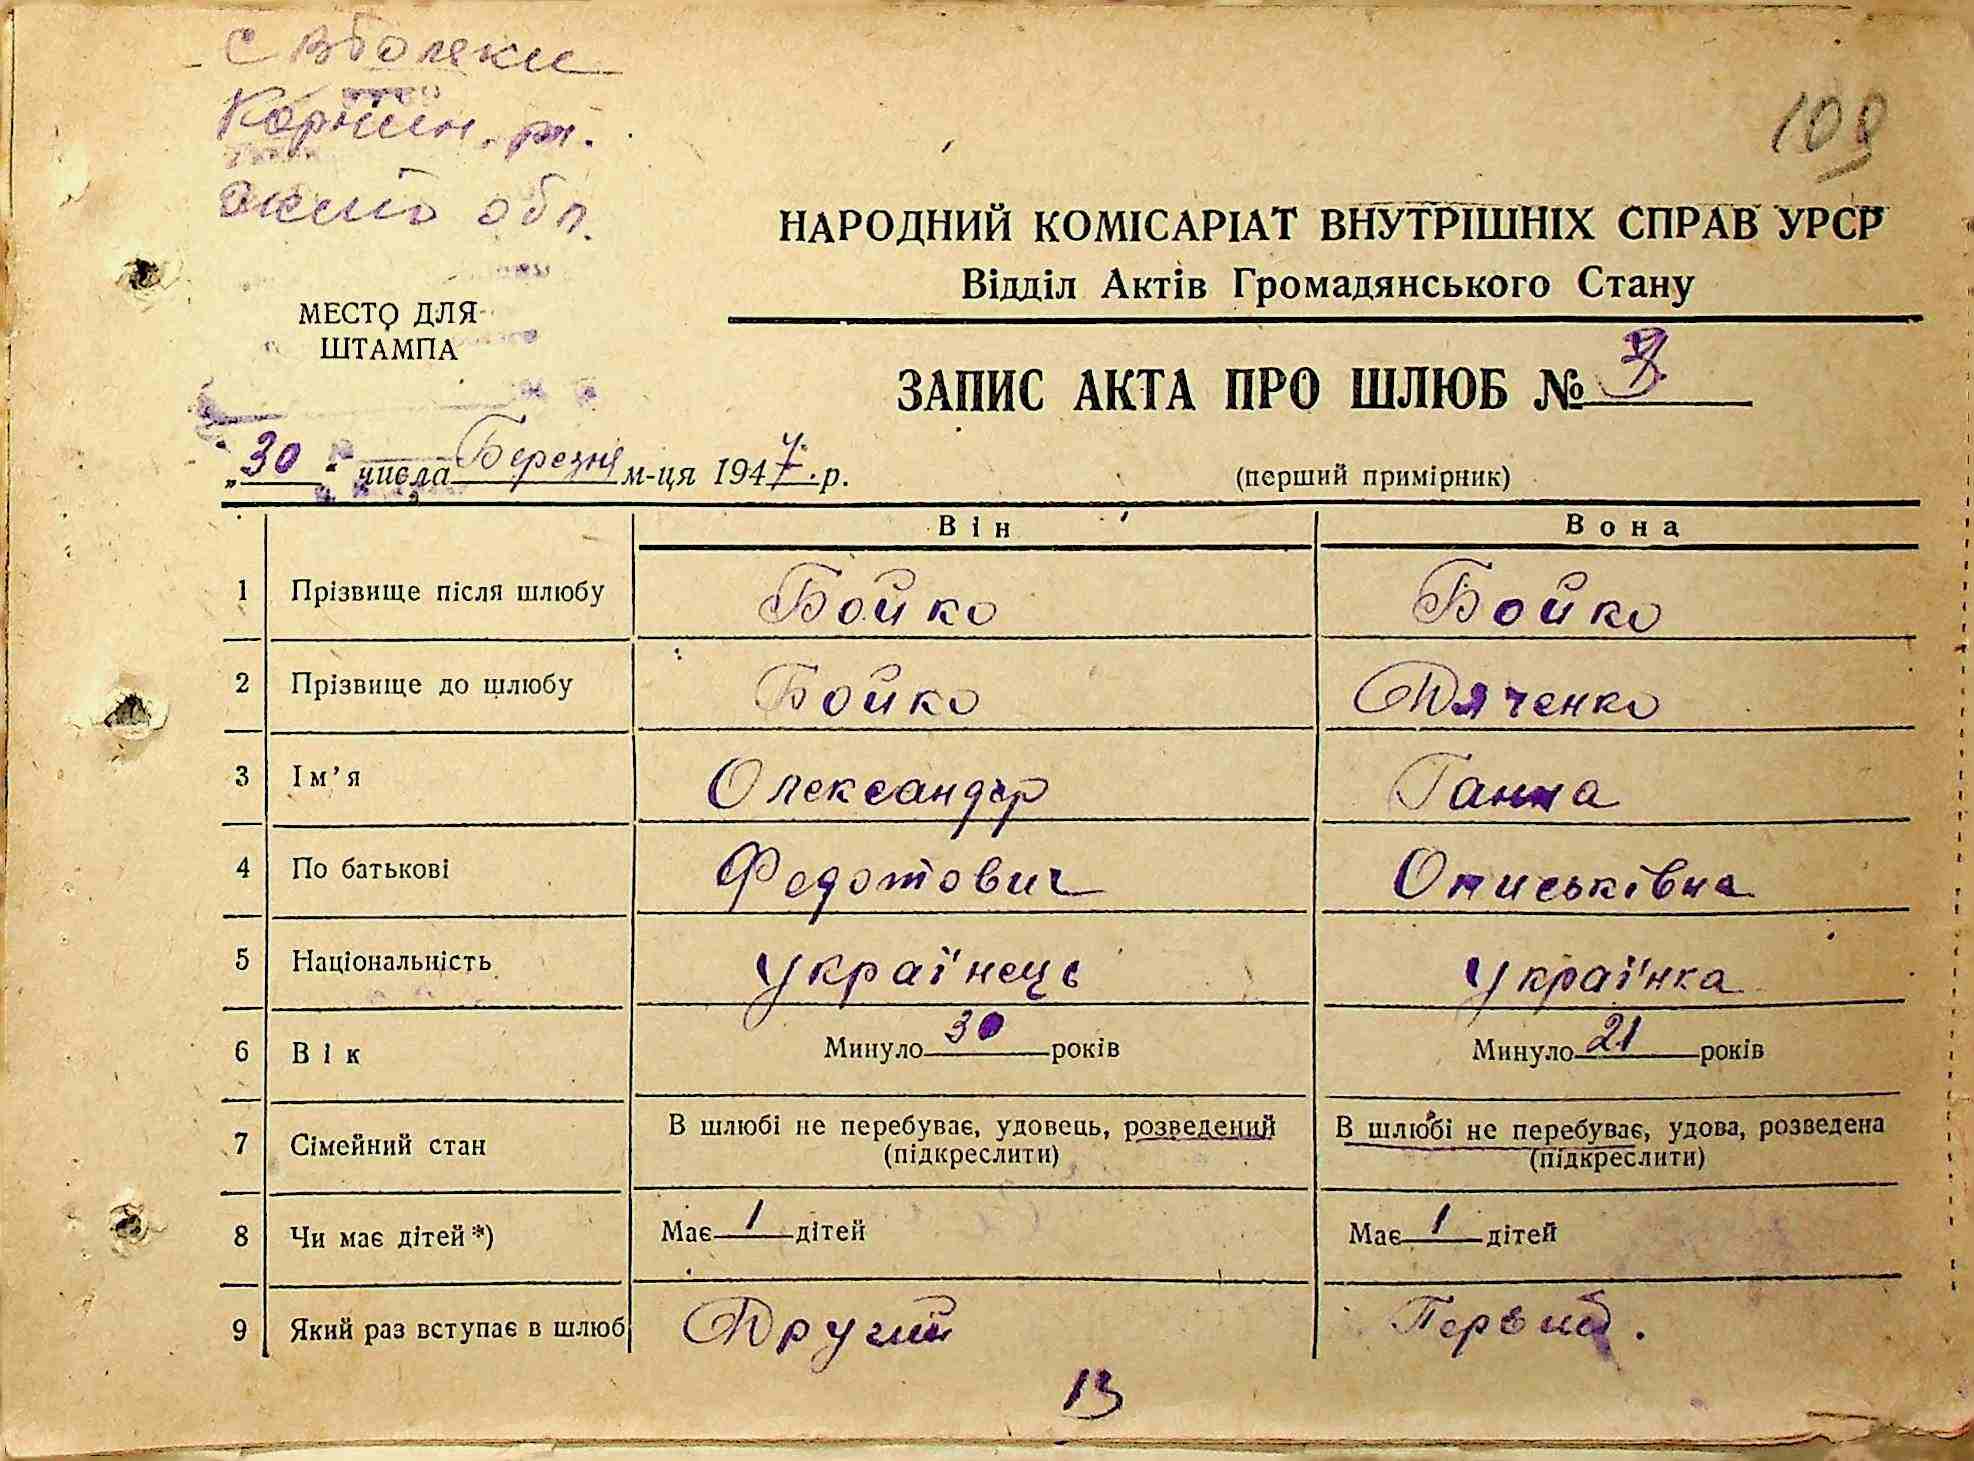 с Вболяки
Корнин. рн.
Жито обл.
108
НАРОДНИЙ КОМІСАРІАТ ВНУТРІШНІХ СПРАВ УРСР
Відділ Актів Громадянського Стану
МЕСТО ДЛЯ
ШТАМПА
ЗАПИС АКТА ПРО ШЛЮБ №
„30" числа Березня м-ця 1947 р.
(перший примірник)
Він Вона
1 Прізвище після шлюбу Бойко Бойко
2 Прізвище до шлюбу Бойко Дяченко
3 Ім'я Олександр Ганна
4 По батькові Федотович Описьківна
5 Національність Українець Українка
6 Вік Минуло 30 років Минуло 21 років
7 Сімейний стан В шлюбі не перебуває, удовець, розведений (підкреслити) В шлюбі не перебуває, удова, розведена (підкреслити)
8 Чи має дітей *) Має 1 дітей Має 1 дітей
9 Який раз вступає в шлюб Другий Первий.
13